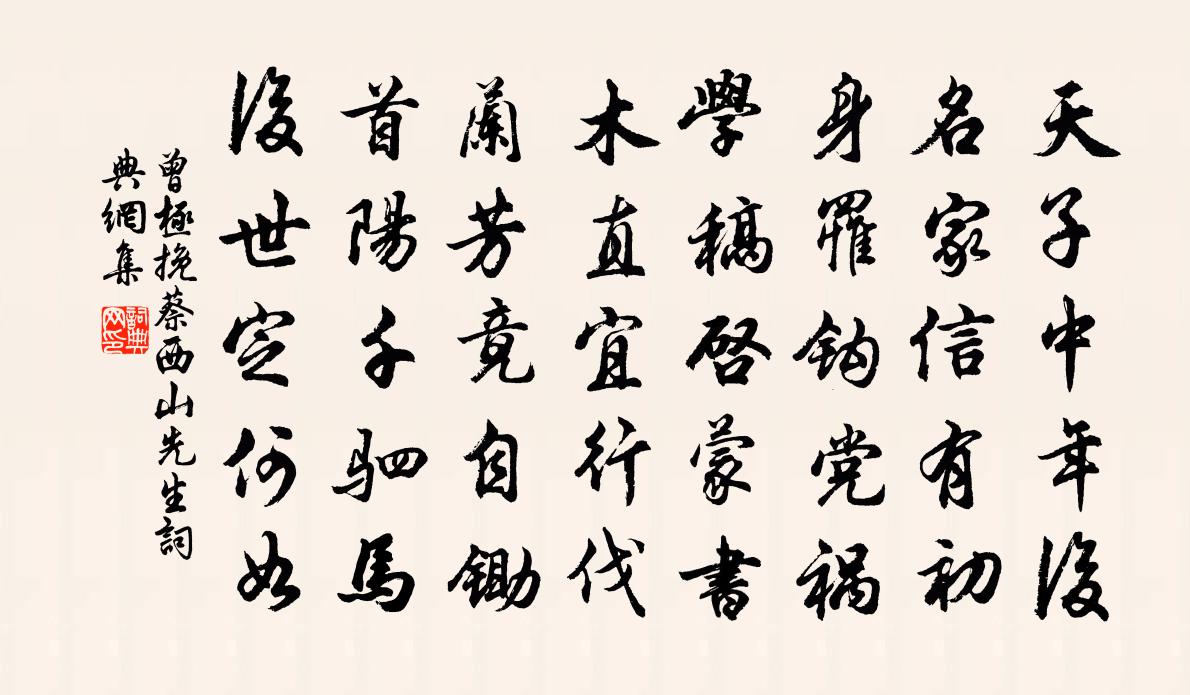 天子中年後
名家信有初
身罹鈎党祸
學稿啓蒙書
木直宜行伐
蘭芳竟自鋤
首陽千駟馬
後世定何如
曾極挽蔡西山先生詞
典網集
詞典网印